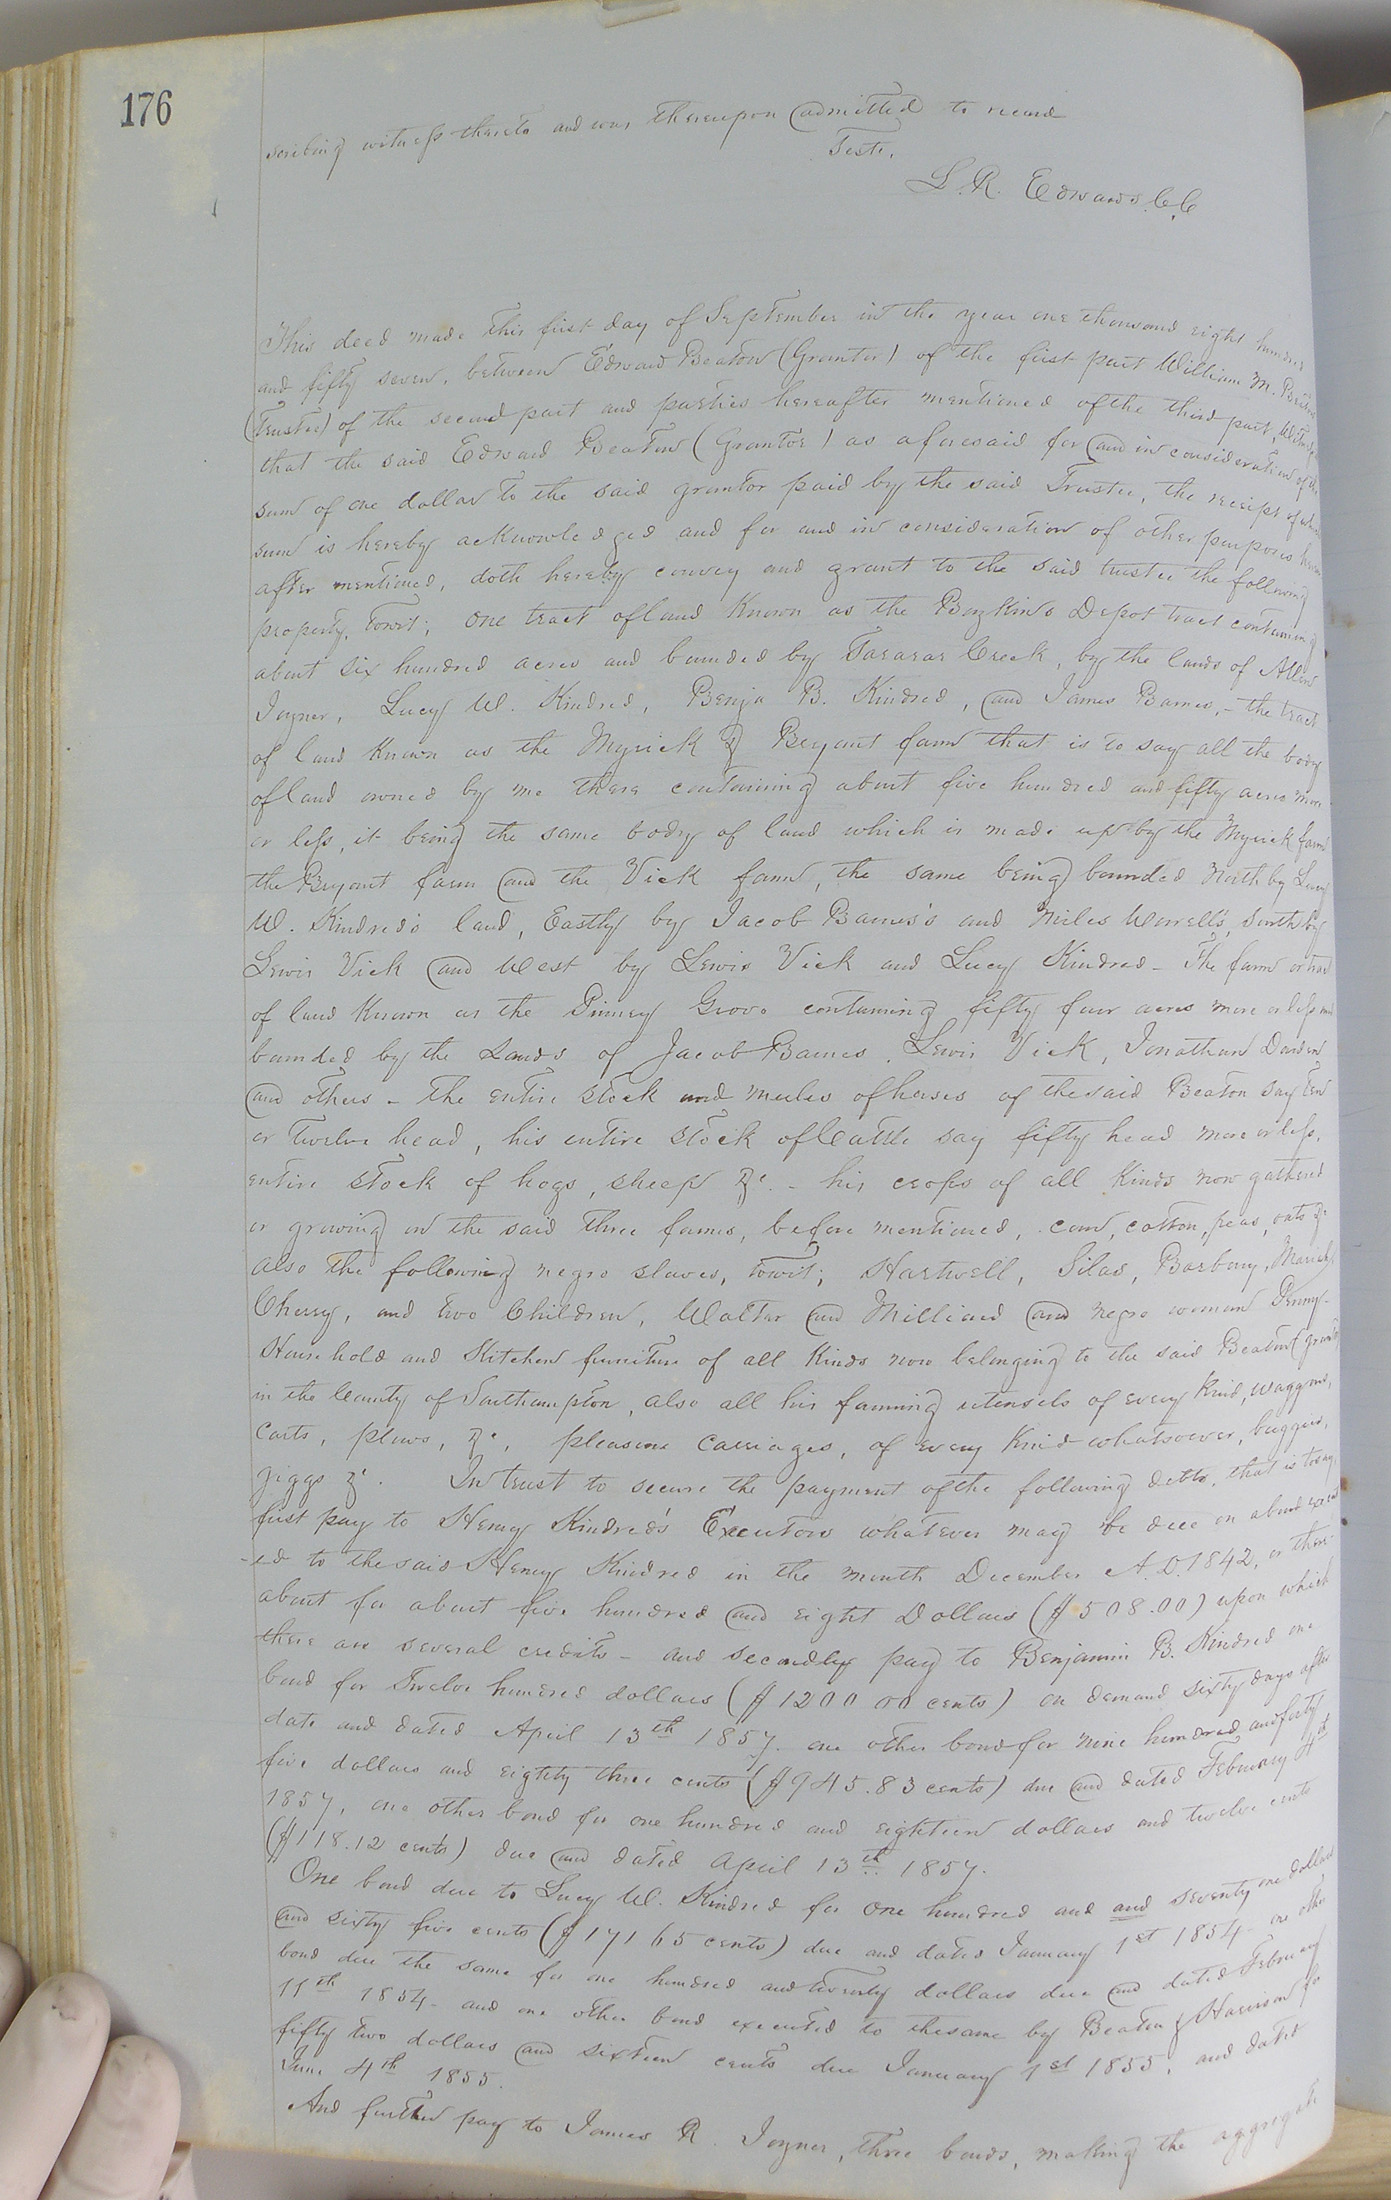 176
scribing witness thereto and was thereupon admitted to record
Teste,
L. R. Edwards C.C
This deed made this first day of September in the year one thousand eight hundred
and fifty seven, between Edward Beaton (Grantor) of the first part William M. Beaton
(Trustee) of the second part and parties hereafter mentioned of the third part, Witnesseth
that the said Edward Beaton (Grantor) as aforesaid for and in consideration of the
sum of one dollar to the said grantor paid by the said Trustee, the receipt of which
sum is hereby acknowledged and for and in consideration of other purposes herein
after mentioned, doth hereby convey and grant to the said trustee the following
property, towit; one tract of land Known as the Boykins Depot tract containing
about six hundred acres and bounded by Tararar Creek, by the lands of Allen
Joyner, Lucy W. Kindred, Benja B. Kindred, and James Barnes, - the tract
of land Known as the Myrick & Bryant farm that is to say all the body
of land owned by me there containing about five hundred and fifty acres more
or less, it being the same body of land which is made up by the Myrick farm
the Bryant farm and the Vick farm, the same being bounded North by Lucy
W. Kindred's land, Eastly by Jacob Barnes's and Miles Worrell's, south by
Lewis Vick and West by Lewis Vick and Lucy Kindred - The farm or tract
of land Known as the Pinney Grove containing fifty four acres more or less and
bounded by the Lands of Jacob Barnes, Lewis Vick, Jonathan Darden
and others - the entire stock and mules of horses of the said Beaton say ten
or twelve head, his entire stock of Cattle say fifty head more or less,
entire stock of hogs, sheep &c. - his crops of all Kinds now gathered
or growing on the said three farms, before mentioned, corn, cotton, peas, oats &c
also the following negro slaves, towit; Hartwell, Silas, Barbary, Mariah
Cherry, and two Children, Walter and Milliard and negro woman Penny -
Household and Kitchen furniture of all Kinds now belonging to the said Beaton (grantor)
in the County of Southampton, also all his farming utensels of every Kind, waggons,
Carts, plows, &c., pleasure carriages, of every Kind whatsoever, buggies,
giggs &c. In trust to secure the payment of the following debts, that is to say,
first pay to Henry Kindred's Executors whatever may be due on a bond execut
-ed to the said Henry Kindred in the month December A.D. 1842, or there
about for about five hundred and eight Dollars ($508.00) upon which
there are several credits - and secondly pay to Benjamin B. Kindred one
bond for Twelve hundred dollars ($1200 00 cents) on demand sixty days after
date and dated April 13th 1857. one other bond for nine hundred and forty
five dollars and eighty three cents ($945.83 cents) due and dated February 4th
1857, one other bond for one hundred and eighteen dollars and twelve cents
($118.12 cents) due and dated April 13th 1857.
One bond due to Lucy W. Kindred for One hundred and and seventy one dollars
and sixty five cents ($171 65 cents) due and dated January 1st 1854 - one other
bond due the same for one hundred and twenty dollars due and dated February
11th 1854 - and one other bond executed to the same by Beaton & Harrison for
fifty two dollars and sixteen cents due January 1st 1855, and dated
June 4th 1855.
And further pay to James R. Joyner, three bonds, making the aggregate